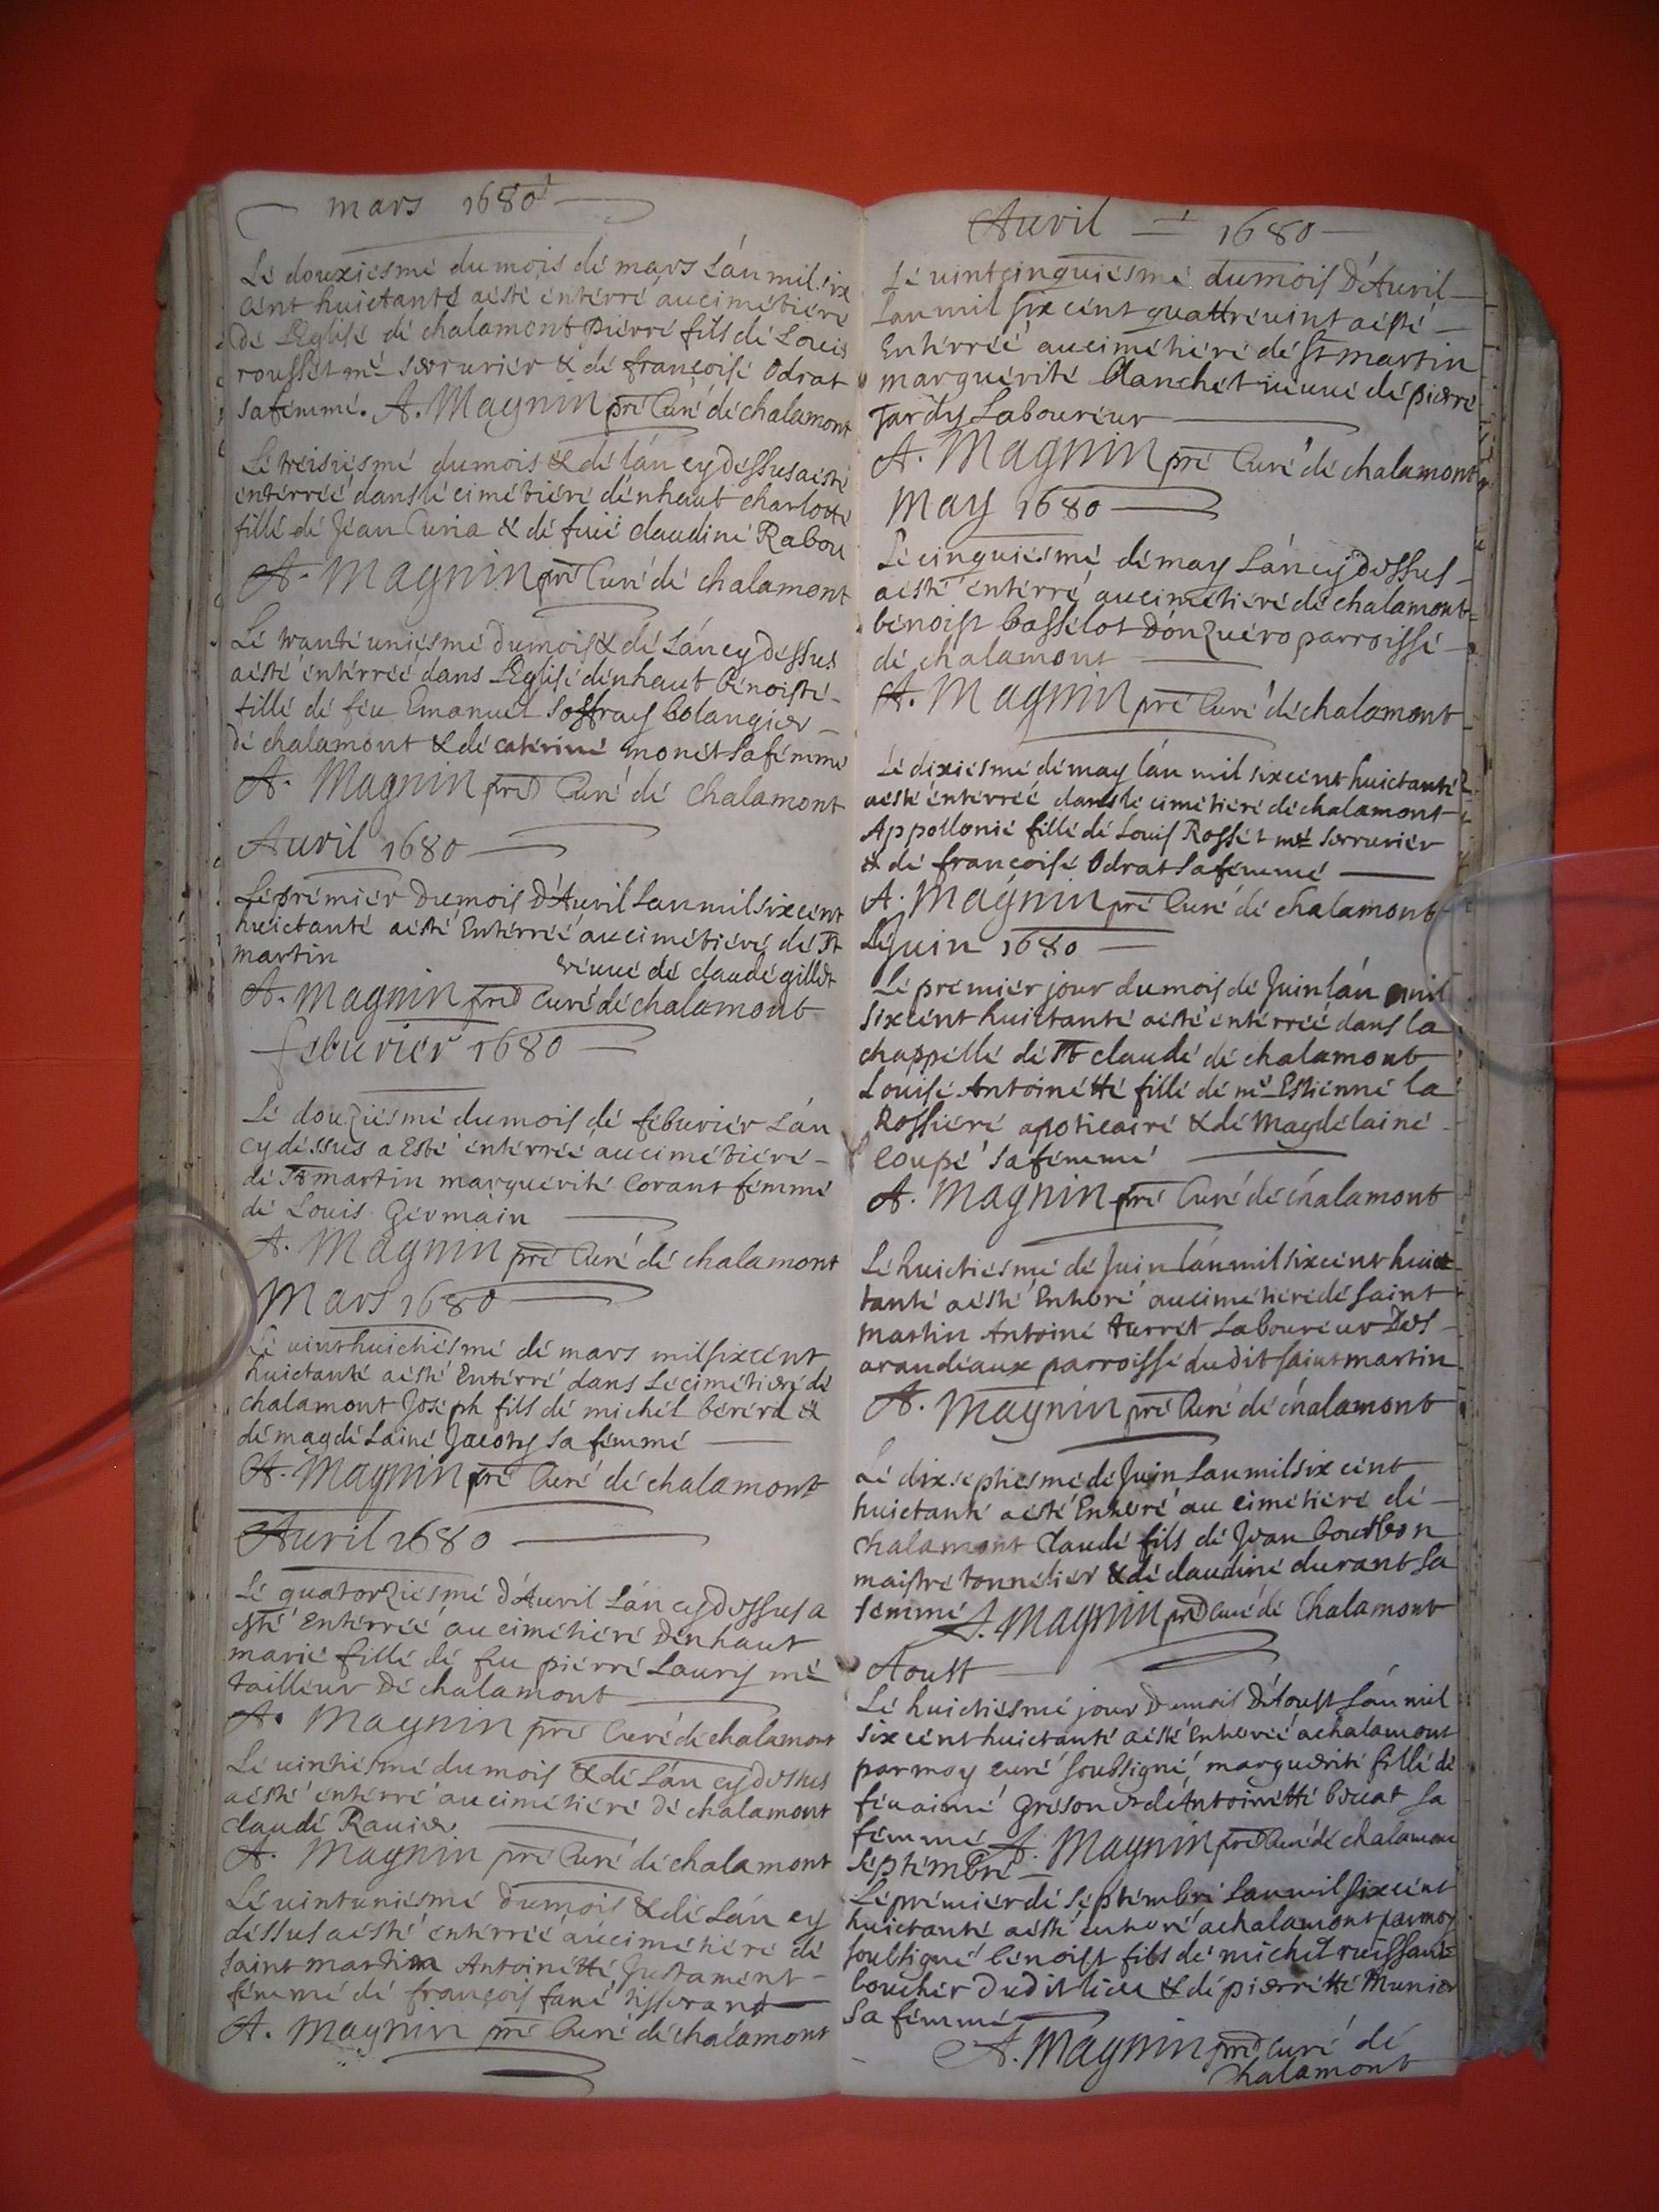 mars 1680
Le douxiesme du mois de mars L'an mil six
cent huictante a esté entérré au cimétiére
de L'Eglise de chalamont Pierre fils de Louis
roussét mé serrurier & de françoise Odrat
sa fémme. A. Magnin pre Curé de chalamont
Le treisiesme du mois & de l'an cy déssus a esté
entérréé dans le cimétiére d'énhaut charlotte
fille de Jean Curia & de fuië claudine Rabou
A. Magnin pre Curé de chalamont
Le trante uniésme du mois & de L'an cy dessus
a esté entérréé dans L'Eglise d'énhaut Bénoiste
fille de feu Emanuel Soffray bolangier
de chalamont & de catérine monét sa fémme
A. Magnin pre Curé de chalamont
Auril 1680
Le prémiér du mois D'Auril L'an mil six cent
huictante a esté Entérréé au cimétiére de St
martin véuue de claude gillet
A. Magnin pre Curé de chalamont
feburiér 1680
Le douziésme du mois de feburiér L'an
cy déssus a Esté entérréé au cimétiére
de St martin marguérite Corant fémme
de Louis Gérmain
A. Magnin pre Curé de chalamont
Mars 1680
Le vint huictiésme de mars mil six cent
huictante a esté Entérré dans Le cimétiére de
chalamont Joséph fils de michél bérérd &
de magdélaine Jacoty sa fémme
A. Magnin pre Curé de chalamont
Auril 1680
Le quatorziésme d'Auril L'an cy dessus a
esté Entérréé au cimétiére D'enhaut
marie fille de feu piérre Laury mé
tailleur De chalamont
A. Magnin pre Curé de chalamont
Le vintiésme du mois & de L'an cy dessus
a esté entérré au cimétiére de chalamont
claude Rauier
A. Magnin pre Curé de chalamont
Le vintuniésme du mois & de L'an cy
déssus a esté entérréé au cimétiére de
saint martin Antoinétte Justamént
fémme de françois fané tisserand
A. Magnin pre Curé de chalamont
Auril 1680
Le vintcinquiésme du mois D'Auril
L'an mil six cent quattre vint a esté
Entérréé au cimétiére de St martin
marguérite blanchét véuue de piérre
Jardy Laboureur
A. Magnin pre Curé de chalamont
May 1680
Le cinquiésme de may L'an cy dessus
a esté entérré au cimétiére de chalamont
bénoist bassélot D'onzuéro parroisse
de chalamont
A. Magnin pre Curé de chalamont
Le dixiésme de may l'an mil six cent huictante
a esté entérréé dans le cimétiére de chalamont
Appollonie fille de Louis Rossét mé serruriér
& de françoise Odrat sa fémme
A. Magnin pre Curé de chalamont
Juin 1680
Le prémiér jour du mois de Juin l'an mil
six cént huictante a esté entérréé dans la
chappélle de St claude de chalamont
Louise Antoinétte fille de mé Estiénne la
Rossiére apoticaire & de Magdélaine
Coupé sa fémme
A. Magnin pre Curé de chalamont
Le huictiésme de Juin L'an mil six cént huic
tante a esté Enterré au cimétiére de Saint
martin Antoine turrét Laboureur Des
arandéaux parroisse dudit saint martin
A. Magnin pre Curé de chalamont
Le dix séptiésme de Juin L'an mil six cént
huictante a esté Enterré au cimétiére de
chalamont Claude fils de Jean bourbon
maistre tonnéliér & de claudine durant sa
fémme A. Magnin pre Curé de Chalamont
Aoust
Le huictiésme jour Du mois D'Aoust L'an mil
six cént huictante a esté Enterréé a chalamont
par moy curé soubsigné marguerite fille de
feu aimé Gréson & de Antoinétte bécat sa
fémme A. Magnin pre Curé de chalamont
Séptémbre
Le prémiér de Séptémbre L'an mil six cént
huictante a esté enterré a chalamont par moy
soubsigné bénoist fils de michél ruissant
bouchér Dudit lieu & de piérrétte Munier
sa fémme
A. Magnin pre Curé de
Chalamont